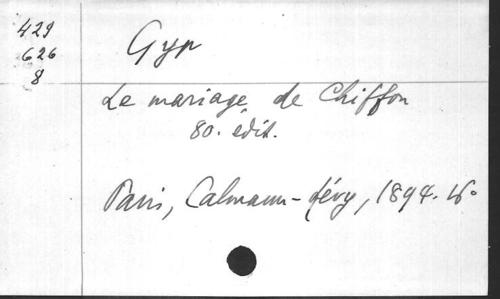 429
626
8
Gyp
Le mariage de Chiffon
80. édit.
Paris, Calmann-Lévy, 1894. 16°